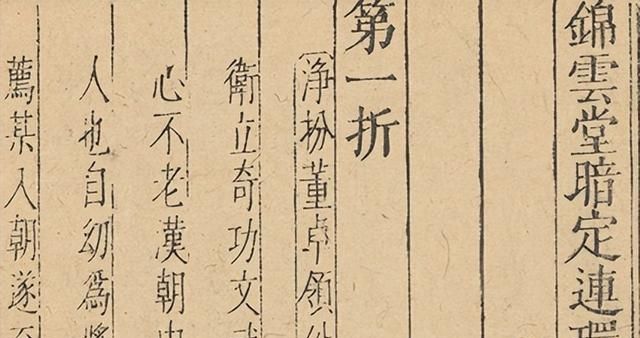 錦雲堂暗定連環
第一折
淨扮董卓領
衛立奇功文武
心不老漢朝
人也自幼爲
薦某入朝遂